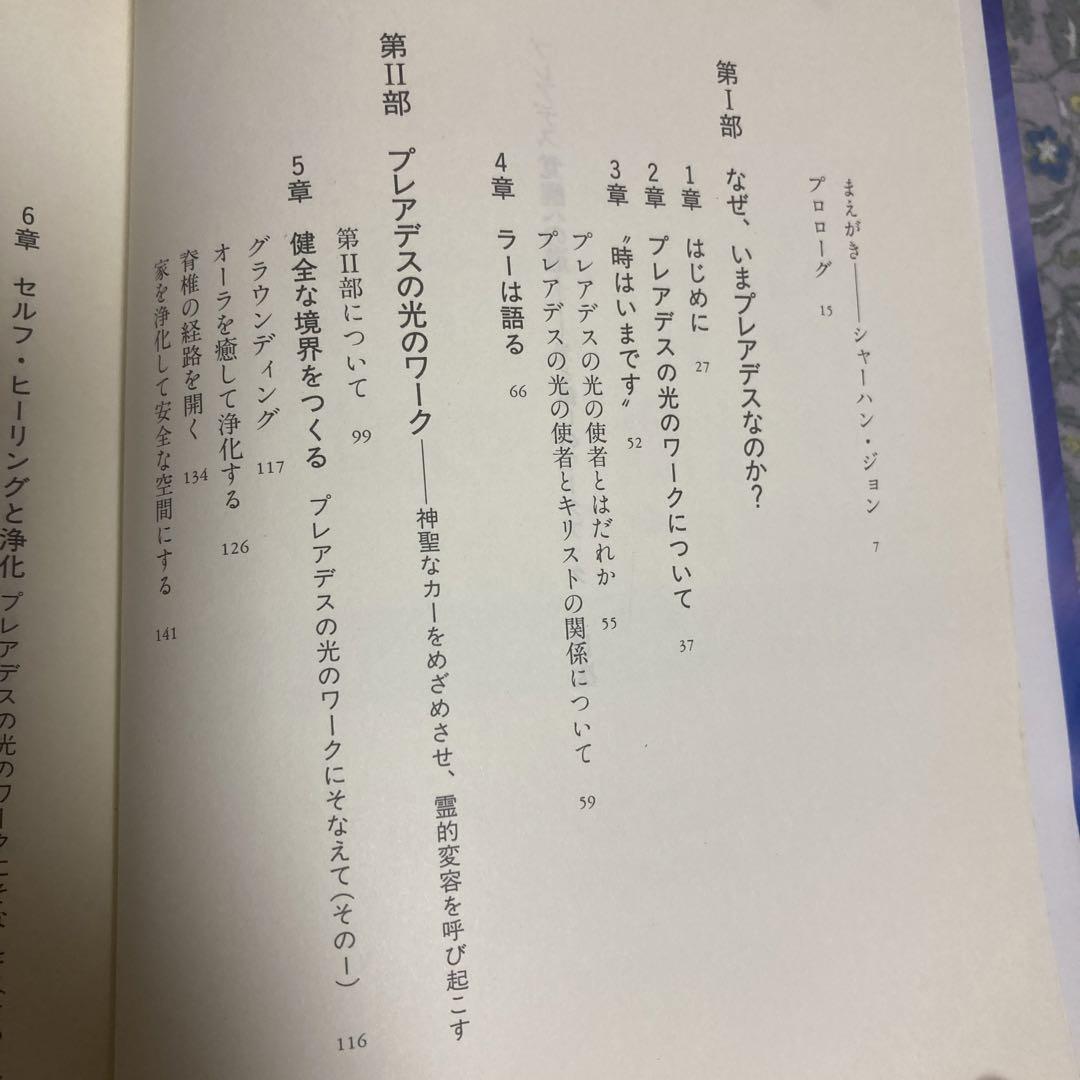 まえがき——シャーハン・ジョン 7
プロローグ 15
第Ⅰ部 なぜ、いまプレアデスなのか？
1章 はじめに 27
2章 プレアデスの光のワークについて 37
3章 〝時はいまです〟 52
プレアデスの光の使者とはだれか 55
プレアデスの光の使者とキリストの関係について 59
4章 ラーは語る 66
第Ⅱ部 プレアデスの光のワーク——神聖なカーをめざめさせ、霊的変容を呼び起こす
第Ⅱ部について 99
5章 健全な境界をつくる プレアデスの光のワークにそなえて(その一) 116
グラウンディング 117
オーラを癒して浄化する 126
脊椎の経路を開く 134
家を浄化して安全な空間にする 141
6章 セルフ・ヒーリングと浄化 プレアデスの光のワークにそな